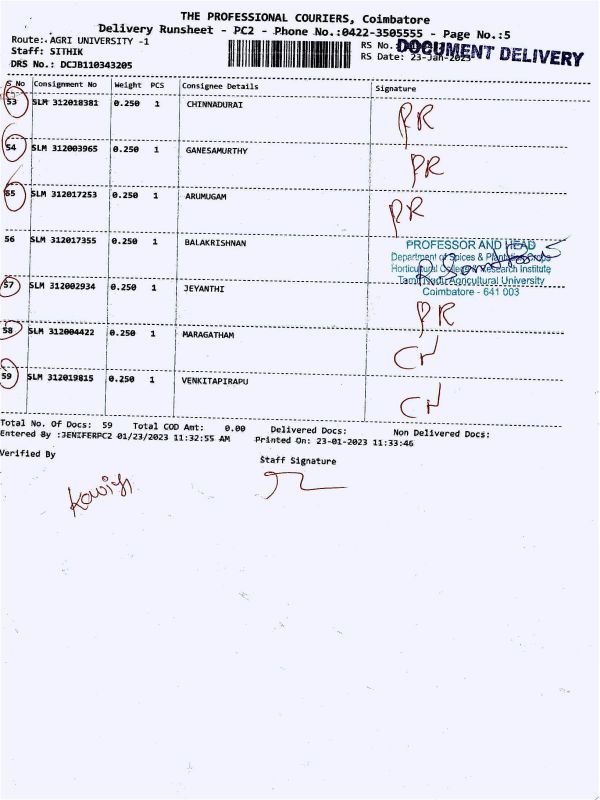 THE PROFESSIONAL COURIERS, Coimbatore
Delivery Runsheet - PC2 - Phone No.:0422-3505555 - Page No.:5
Route:-AGRI UNIVERSITY -1 RS No.: DOCUMENT DELIVERY
Staff: SITHIK RS Date: 23-Jan-2023
DRS No.: DCJB110343205
S No Consignment No Weight PCS Consignee Details Signature
53 SLM 312018381 0.250 1 CHINNADURAI PR
54 SLM 312003965 0.250 1 GANESAMURTHY PR
55 SLM 312017253 0.250 1 ARUMUGAM PR
56 SLM 312017355 0.250 1 BALAKRISHNAN
PROFESSOR AND HEAD
Department of Spices & Plantation Crops
Horticultural College & Research Institute
Tamil Nadu Agricultural University
Coimbatore - 641 003
57 SLM 312002934 0.250 1 JEYANTHI PR
58 SLM 312004422 0.250 1 MARAGATHAM CH
59 SLM 312019815 0.250 1 VENKITAPIRAPU CH
Total No. Of Docs: 59 Total COD Amt: 0.00 Delivered Docs: Non Delivered Docs:
Entered By :JENIFERPC2 01/23/2023 11:32:55 AM Printed On: 23-01-2023 11:33:46
Verified By Staff Signature